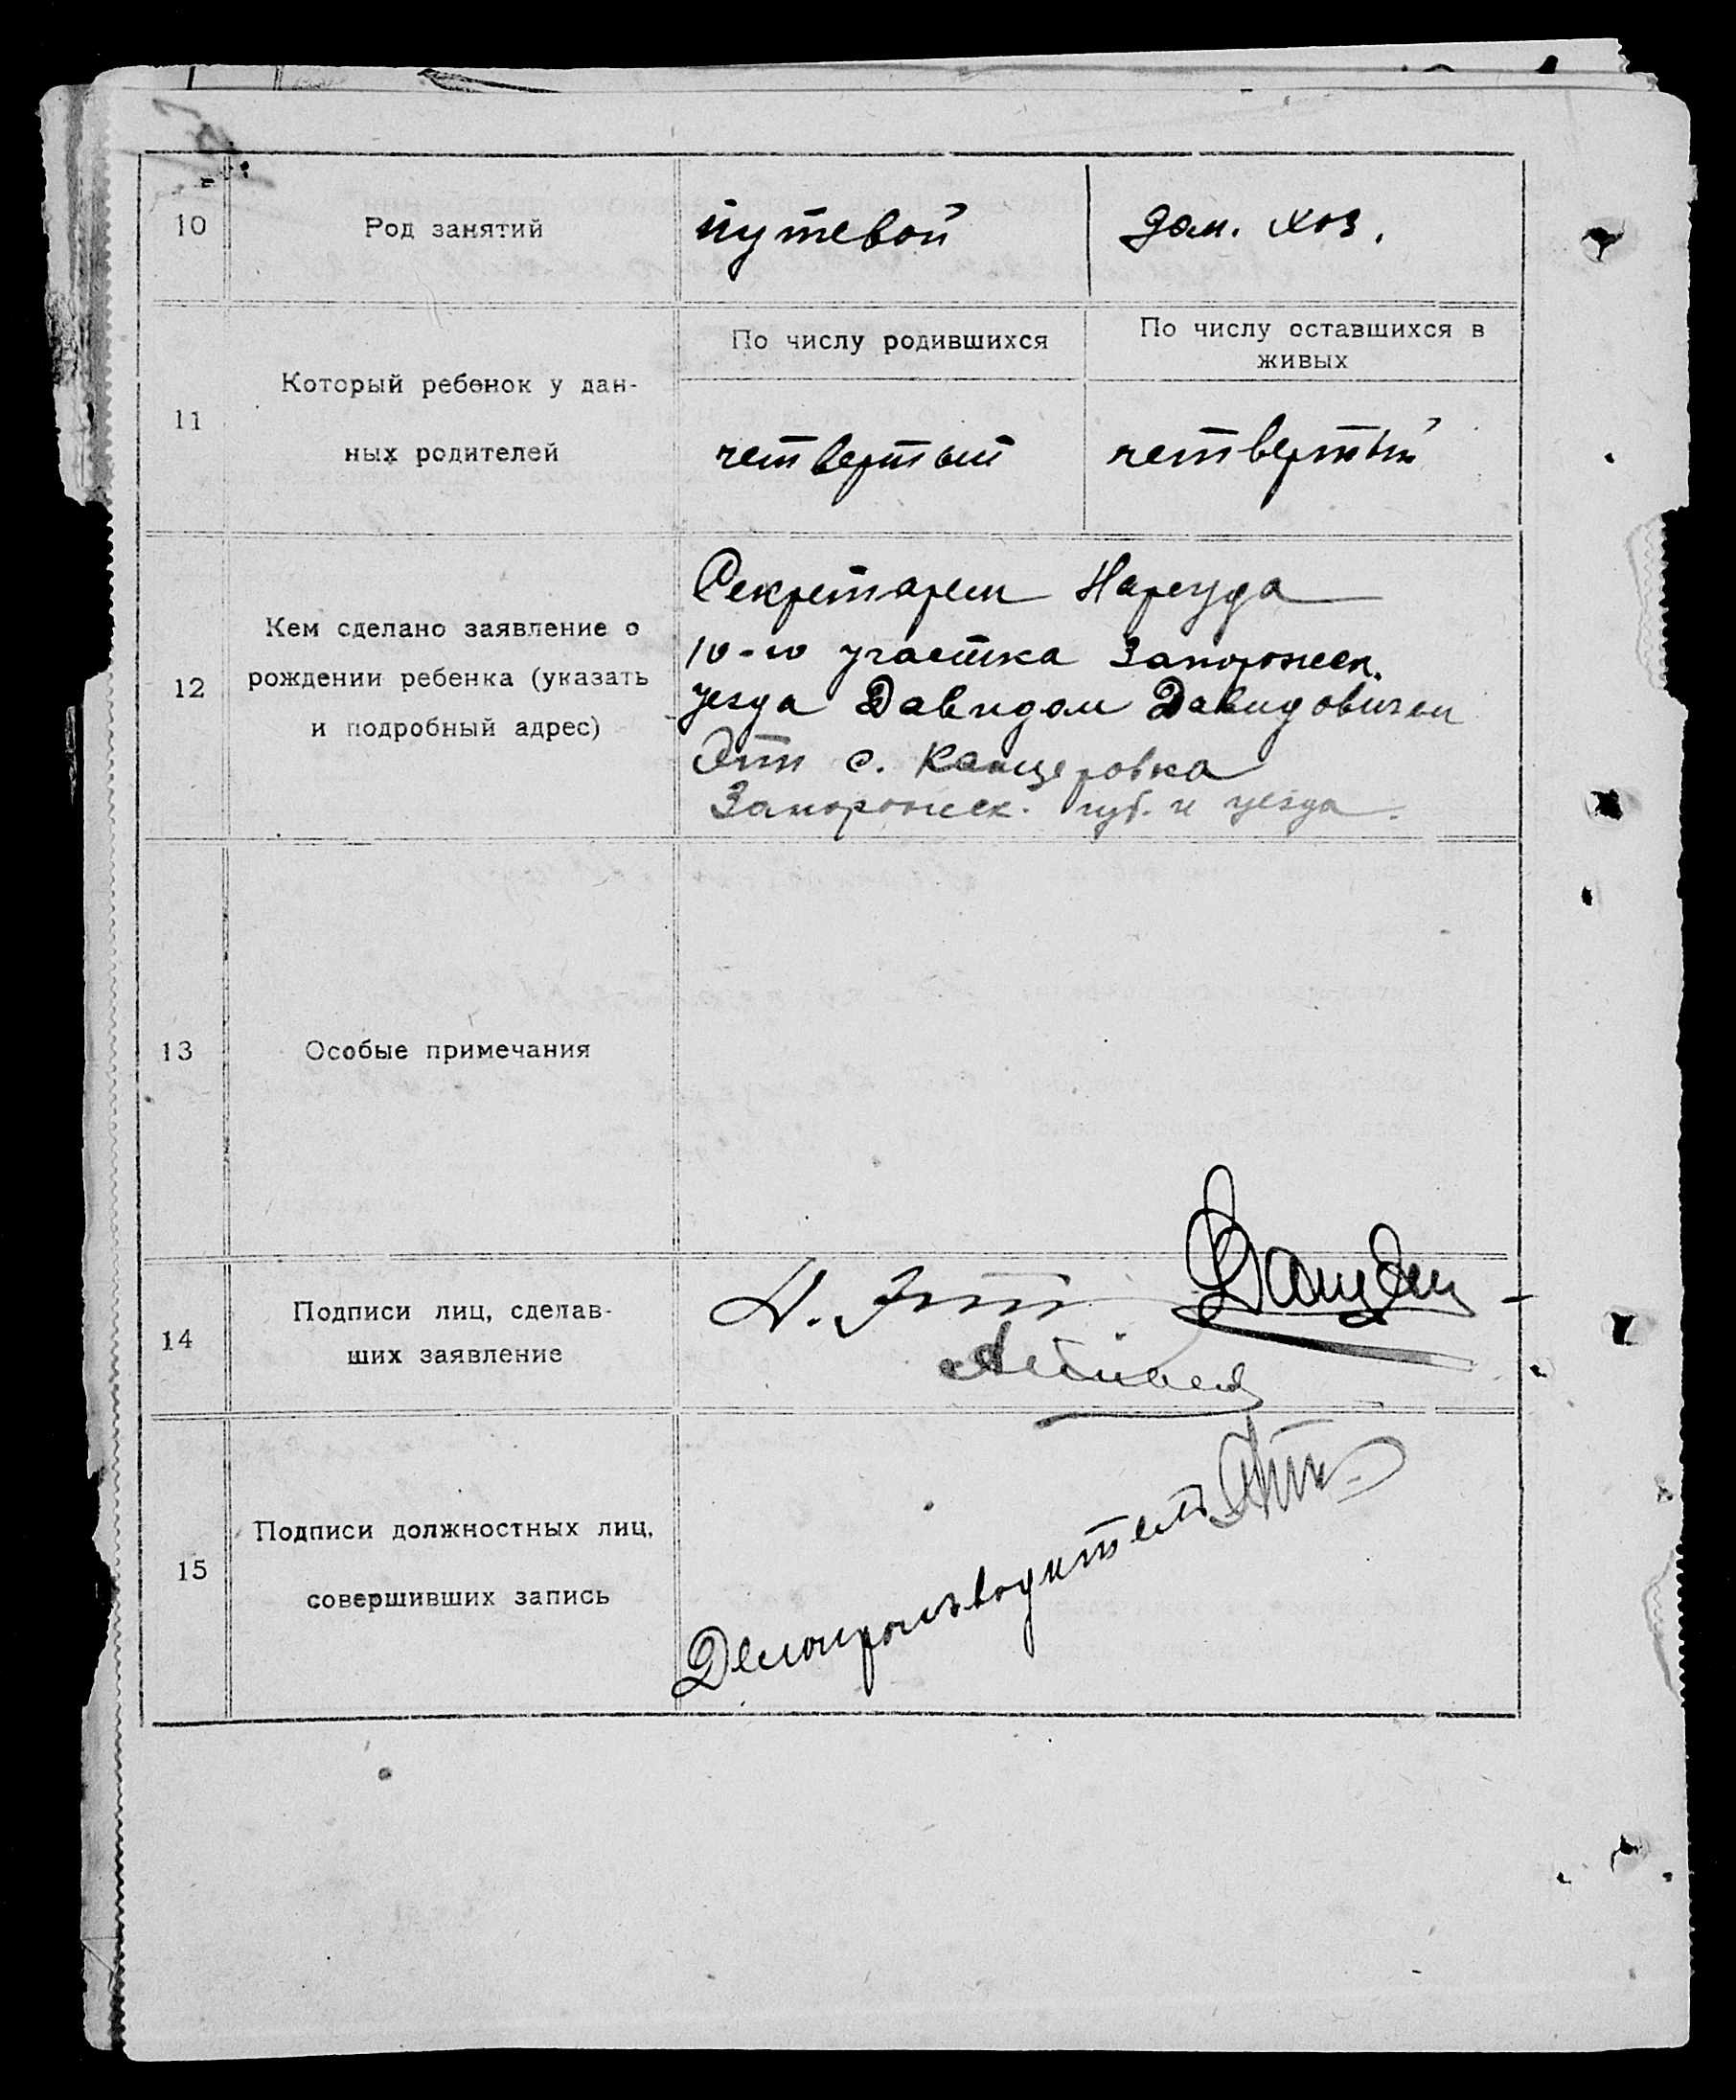 10
Род занятий
путевой
дом. хоз.
11
Который ребенок у дан-
ных родителей
По числу родившихся
По числу оставшихся в
живых
четвертый
четвертый
12
Кем сделано заявление о
рождении ребенка (указать
и подробный адрес)
Секретарем Нарсуда
10-го участка Запорожск.
уезда Давидом Давидовичем
Эпп с. Канцеровка
Запорожск. губ. и уезда.
13
Особые примечания
14
Подписи лиц, сделав-
ших заявление
Д. Эпп
15
Подписи должностных лиц,
совершивших запись
Делопроизводитель